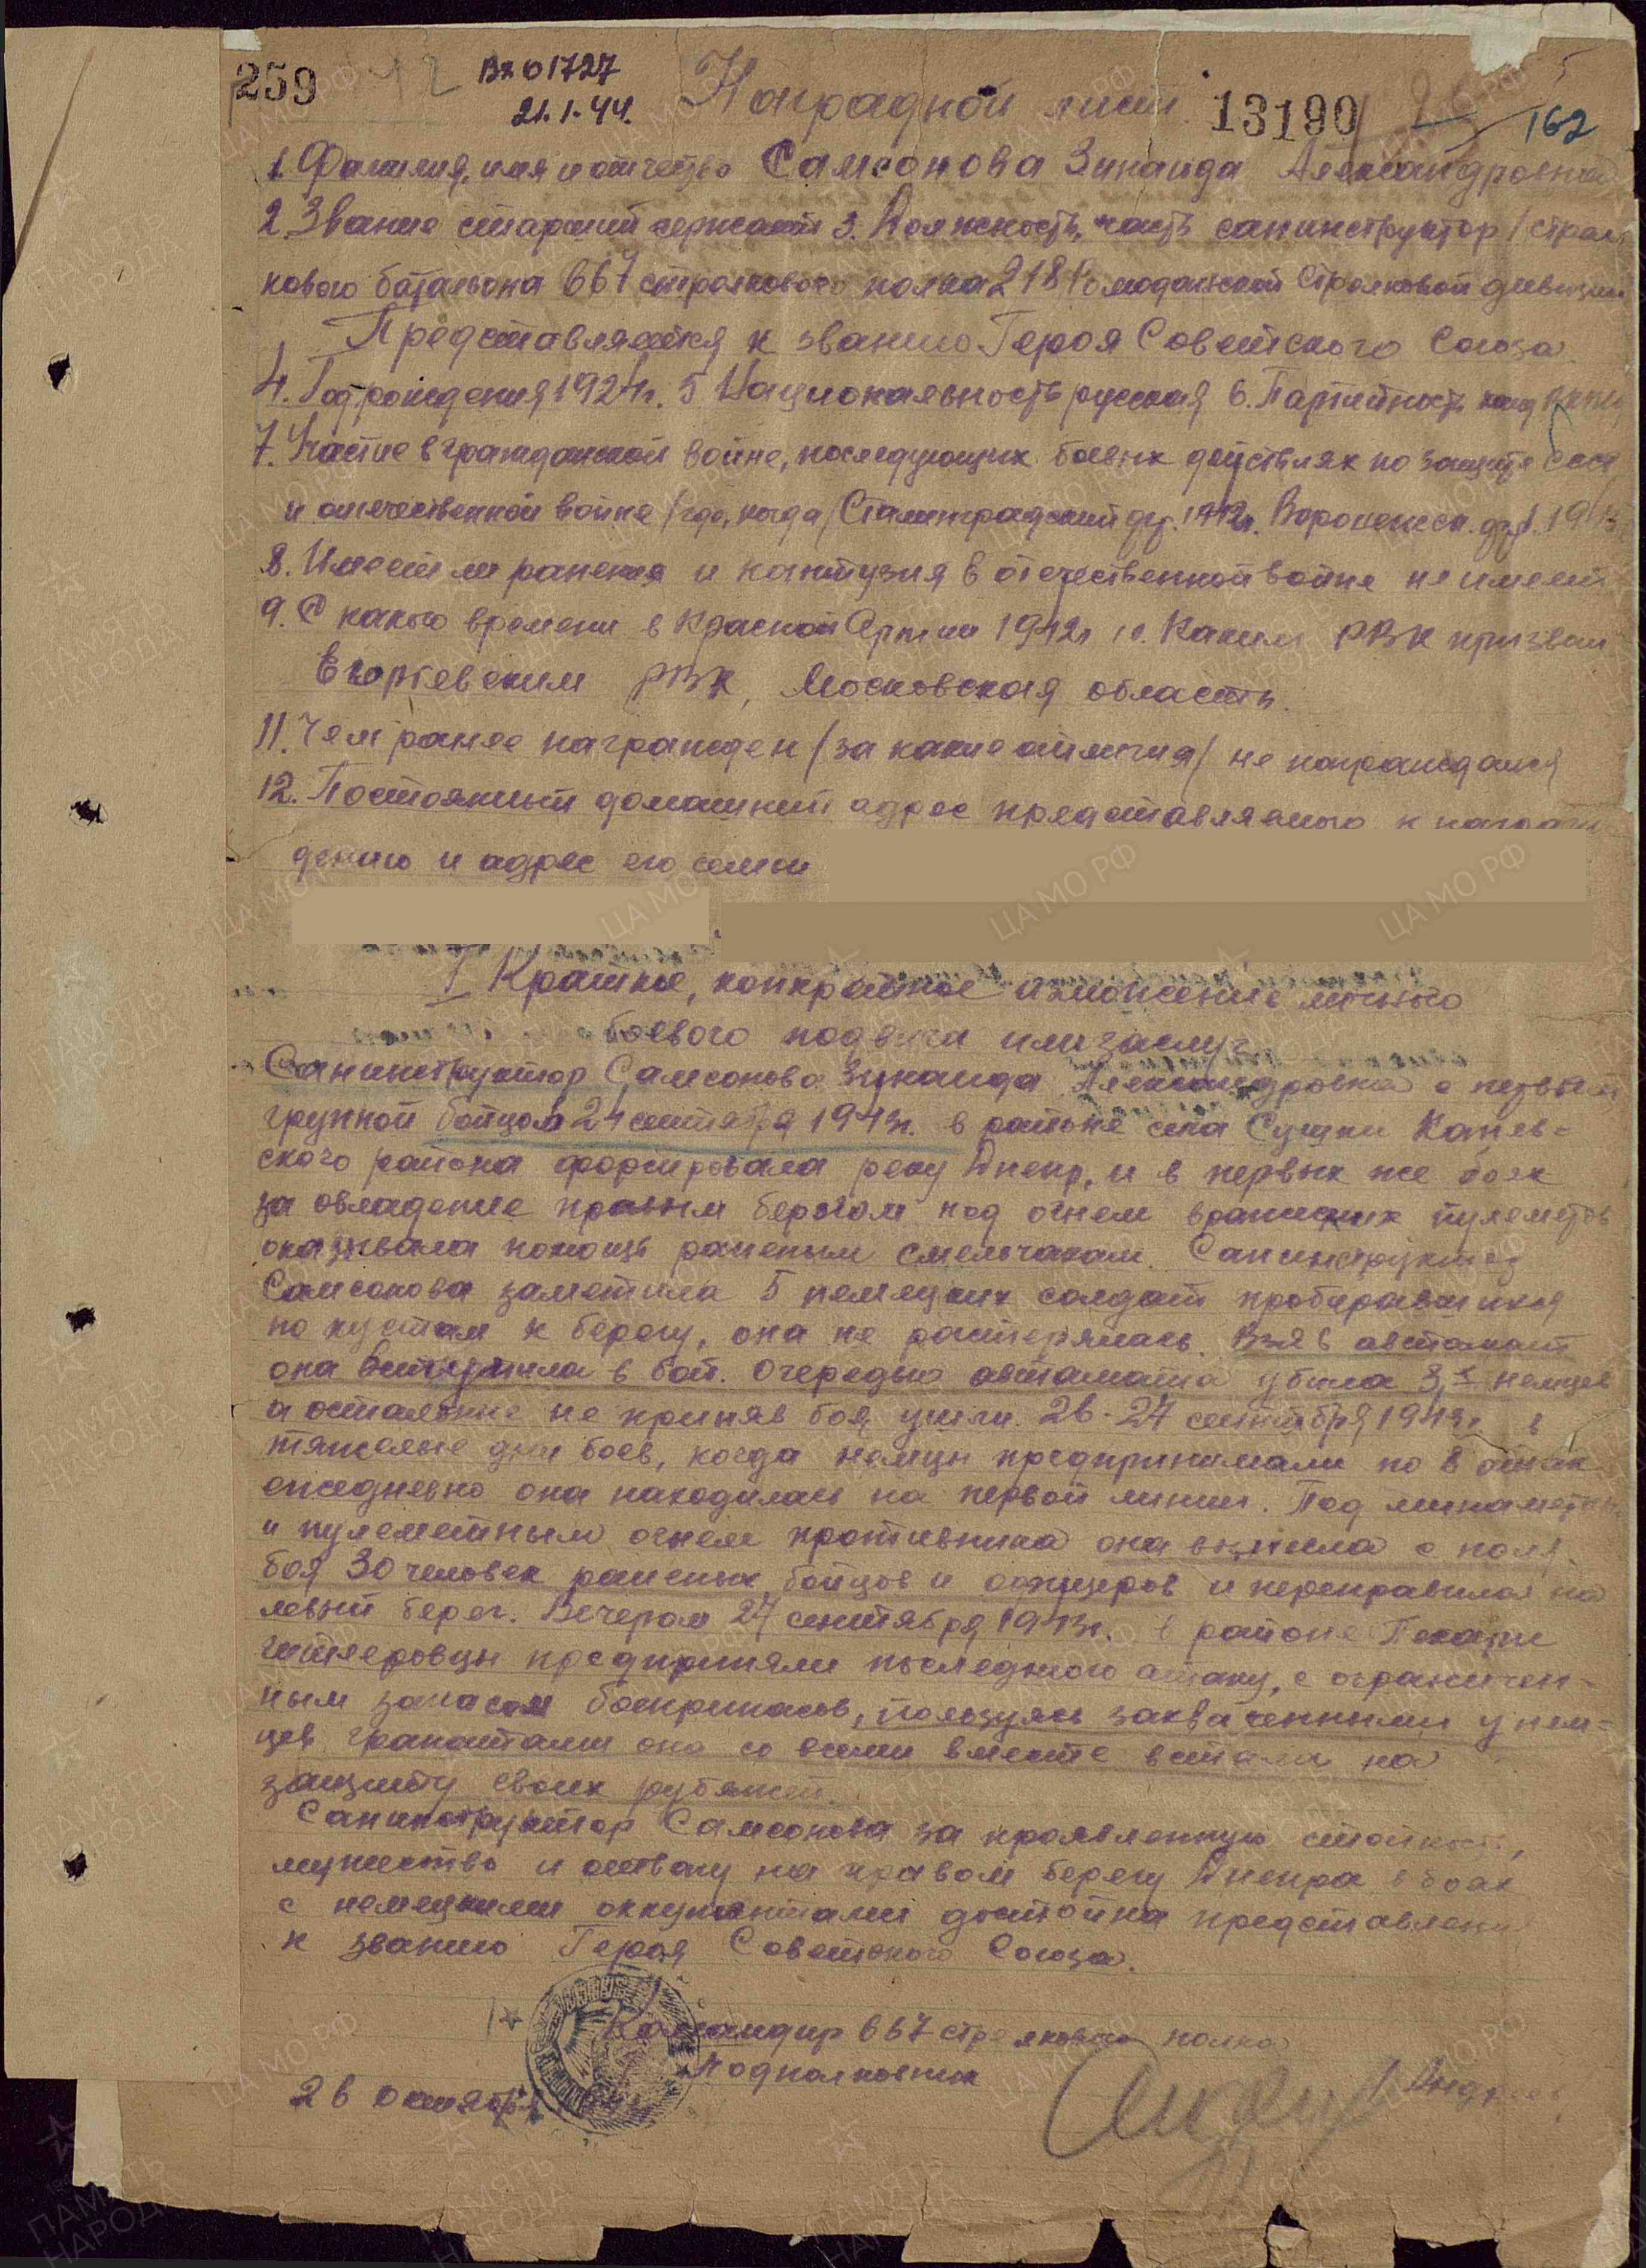 259
Вх 01727
21.1.44.
Наградной лист
13190
162
1. Фамилия, имя и отчество Самсонова Зинаида Александровна
2. Звание старший сержант 3. Должность, часть санинструктор 1 стрел
кового батальона 667 стрелкового полка 218 Ромоданской Стрелковой дивизии
Представляется к званию Героя Советского Союза.
4. Год рождения 1924г. 5 Национальность русская 6. Партийность канд ВКП(б)
7. Участие в гражданской войне, последующих боевых действиях по защите СССР
и отечественной войне /где, когда/ Сталинградский фр. 1942г. Воронежск. фр. 1943
8. Имеет ли ранения и контузия в отечественной войне не имеет
9. С какого времени в Красной Армии 1942г 10. Каким РВК призван
Егорьевским РВК, Московская область.
11. Чем ранее награжден /за какие отличия/ не награждался
12. Постоянный домашний адрес представляемого к награж
дению и адрес его семьи
I Краткое, конкретное изложение личного
боевого подвига или заслуг
Санинструктор Самсонова Зинаида Александровна с первой
группой бойцов 24 сентября 1943г. в районе села Сушки Канев-
ского района форсировала реку Днепр, и в первых же боях
за овладение правым берегом под огнем вражеских пулеметов
оказывала помощь раненым смельчакам. Санинструктор
Самсонова заметила 5 немецких солдат пробиравшихся
по кустам к берегу, она не растерялась. Взяв автомат
она вступила в бой. Очередью автомата убила 3х немцев
а остальные не приняв боя ушли. 26-27 сентября 1943г. в
тяжелые дни боев, когда немцы предпринимали по 8 атак
ежедневно она находилась на первой линии. Под минометным
и пулеметным огнем противника она вынесла с поля
боя 30 человек раненых бойцов и офицеров и переправила на
левый берег. Вечером 27 сентября 1943г. в районе Пекари
гитлеровцы предприняли последнюю атаку, с ограничен-
ным запасом боеприпасов, пользуясь захваченными у нем-
цев гранатами она со всеми вместе встала на
защиту своих рубежей.
Санинструктор Самсонова за проявленную стойкость,
мужество и отвагу на правом берегу Днепра в боях
с немецкими оккупантами достойна представления
к званию Героя Советского Союза.
Командир 667 стрелкового полка
Подполковник
/Андреев/
26 октября
ЦА МО РФ
ПАМЯТЬ НАРОДА